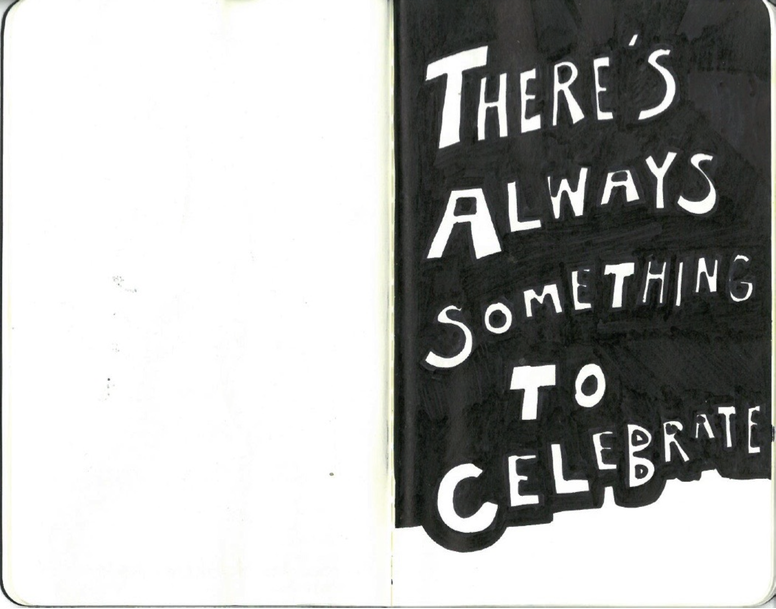 THERE'S
ALWAYS
SOMETHING
TO
CELEBRATE